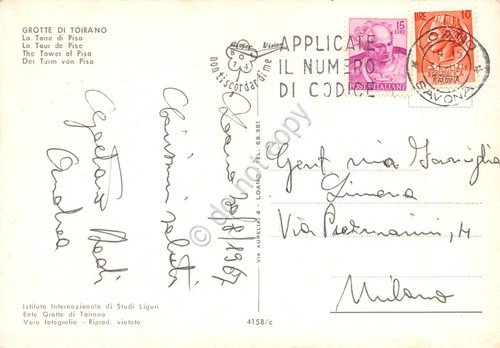 GROTTE DI TOIRANO
La Torre di Pisa
La Tour de Pise
The Tower of Pisa
Der Turm von Pisa
non ti scordar di me
APPLICATE
IL NUMERO
DI CODICE
15
LIRE
POSTE ITALIANE
LIRE 10
LOANO
SAVONA
Loano 20/8/1967
Carissimi saluti
Gaetano
Andrea
Gent. mia Famiglia
Limena
Via Piermarini, 4
Milano
VIA AURELIA 4 - LOANO - TEL. 69.381
do not copy
Istituto Internazionale di Studi Liguri
Ente Grotte di Toirano
Vera fotografia - Riprod. vietata
4158/c